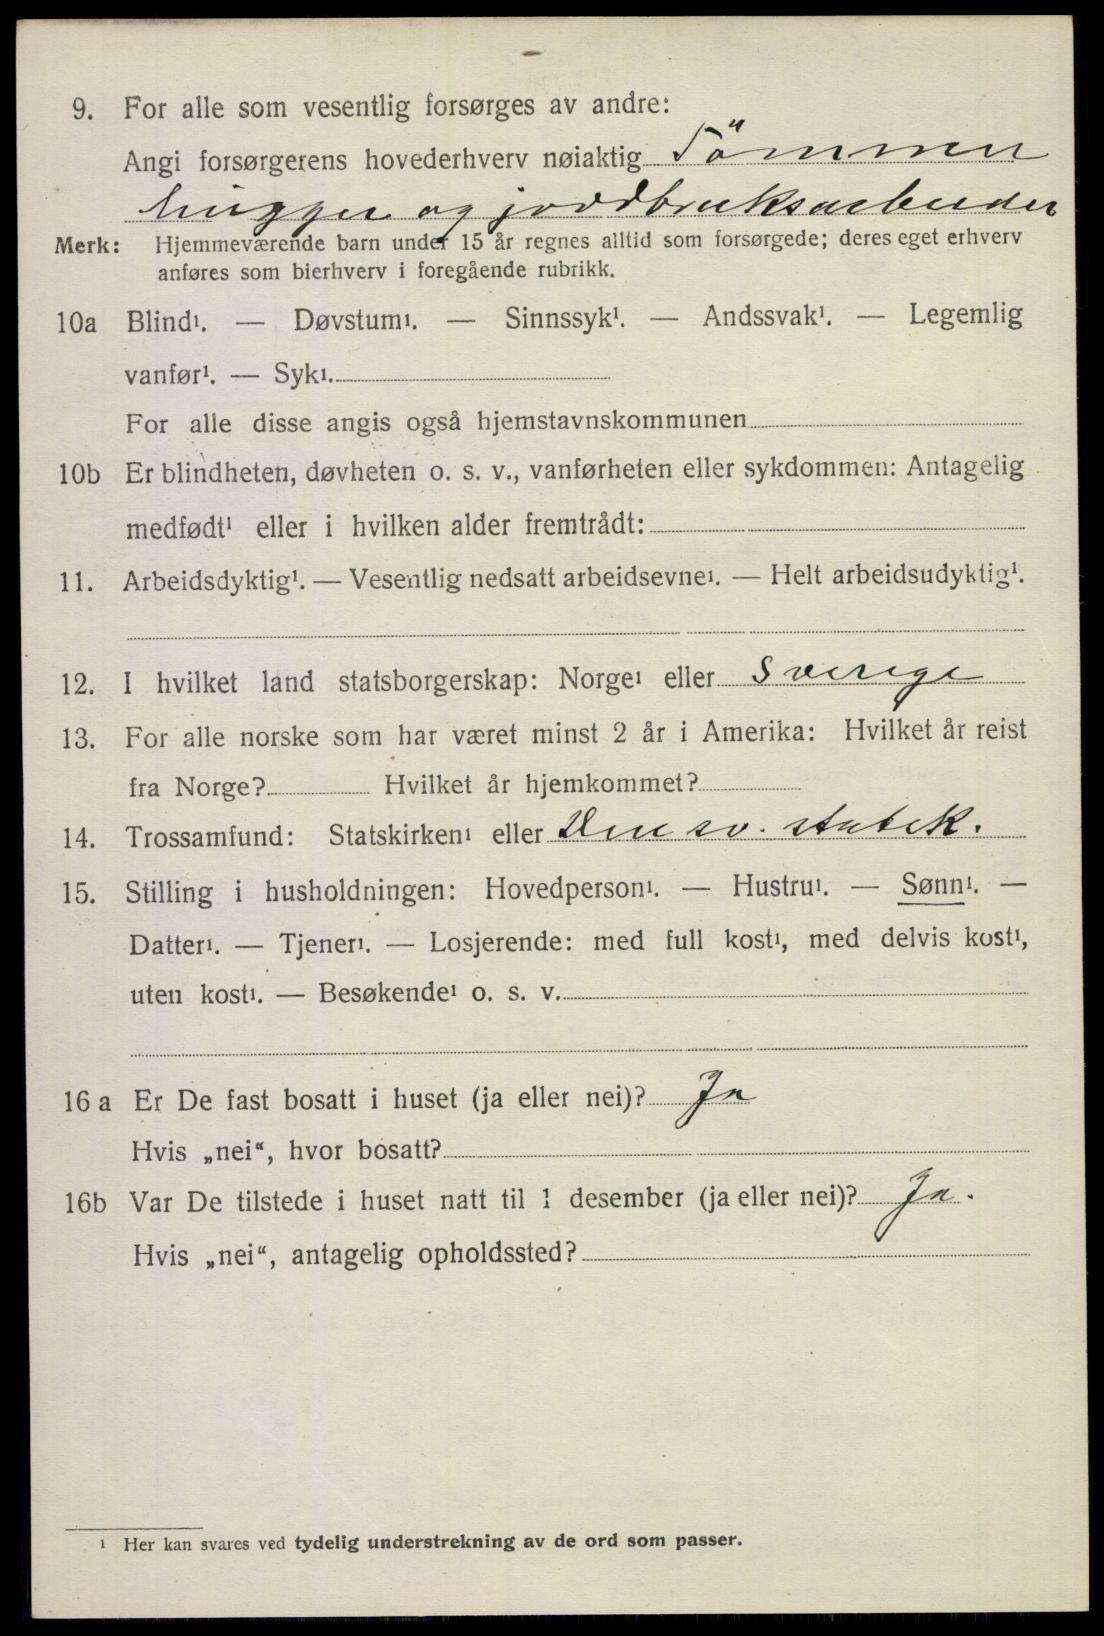 9. For alle som vesentlig forsørges av andre:
Angi forsørgerens hovederhverv nøiaktig Tömmer
hugger og jorddbruksarbeider
Merk: Hjemmeværende barn under 15 år regnes alltid som forsørgede; deres eget erhverv
anføres som bierhverv i foregående rubrikk.
10a Blind¹. — Døvstum¹. — Sinnssyk¹. — Andssvak¹. — Legemlig
vanfør¹. — Syk¹.
For alle disse angis også hjemstavnskommunen
10b Er blindheten, døvheten o. s. v., vanførheten eller sykdommen: Antagelig
medfødt¹ eller i hvilken alder fremtrådt:
11. Arbeidsdyktig¹. — Vesentlig nedsatt arbeidsevne¹. — Helt arbeidsudyktig¹.
12. I hvilket land statsborgerskap: Norge¹ eller Sverige
13. For alle norske som har været minst 2 år i Amerika: Hvilket år reist
fra Norge? Hvilket år hjemkommet?
14. Trossamfund: Statskirken¹ eller Den sv. statsk.
15. Stilling i husholdningen: Hovedperson¹. — Hustru¹. — Sønn¹. —
Datter¹. — Tjener¹. — Losjerende: med full kost¹, med delvis kost¹,
uten kost¹. — Besøkende¹ o. s. v.
16a Er De fast bosatt i huset (ja eller nei)? Ja
Hvis „nei“, hvor bosatt?
16b Var De tilstede i huset natt til 1 desember (ja eller nei)? Ja.
Hvis „nei“, antagelig opholdssted?
¹ Her kan svares ved tydelig understrekning av de ord som passer.